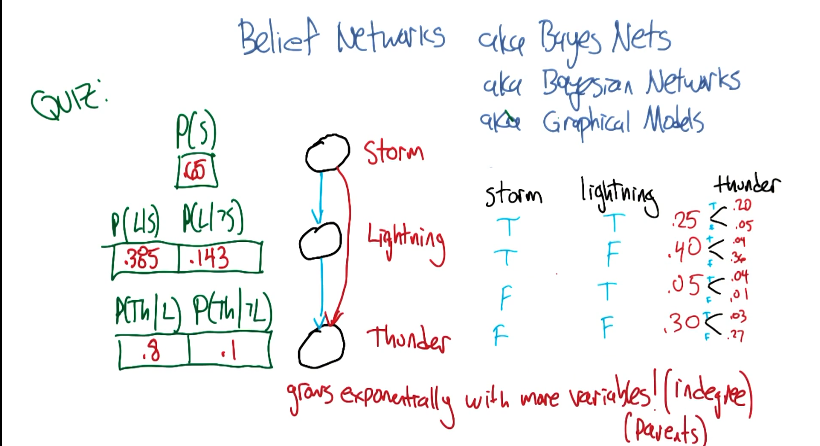 Belief Networks aka Bayes Nets
aka Bayesian Networks
aka Graphical Models
QUIZ:
P(S)
.65
P(L|S) P(L|¬S)
.385 .143
P(Th|L) P(Th|¬L)
.8 .1
Storm
Lightning
Thunder
storm lightning thunder
T T .25 < T .20
F .05
T F .40 < T .04
F .36
F T .05 < T .04
F .01
F F .30 < T .03
F .27
grows exponentially with more variables! (indegree)
(parents)